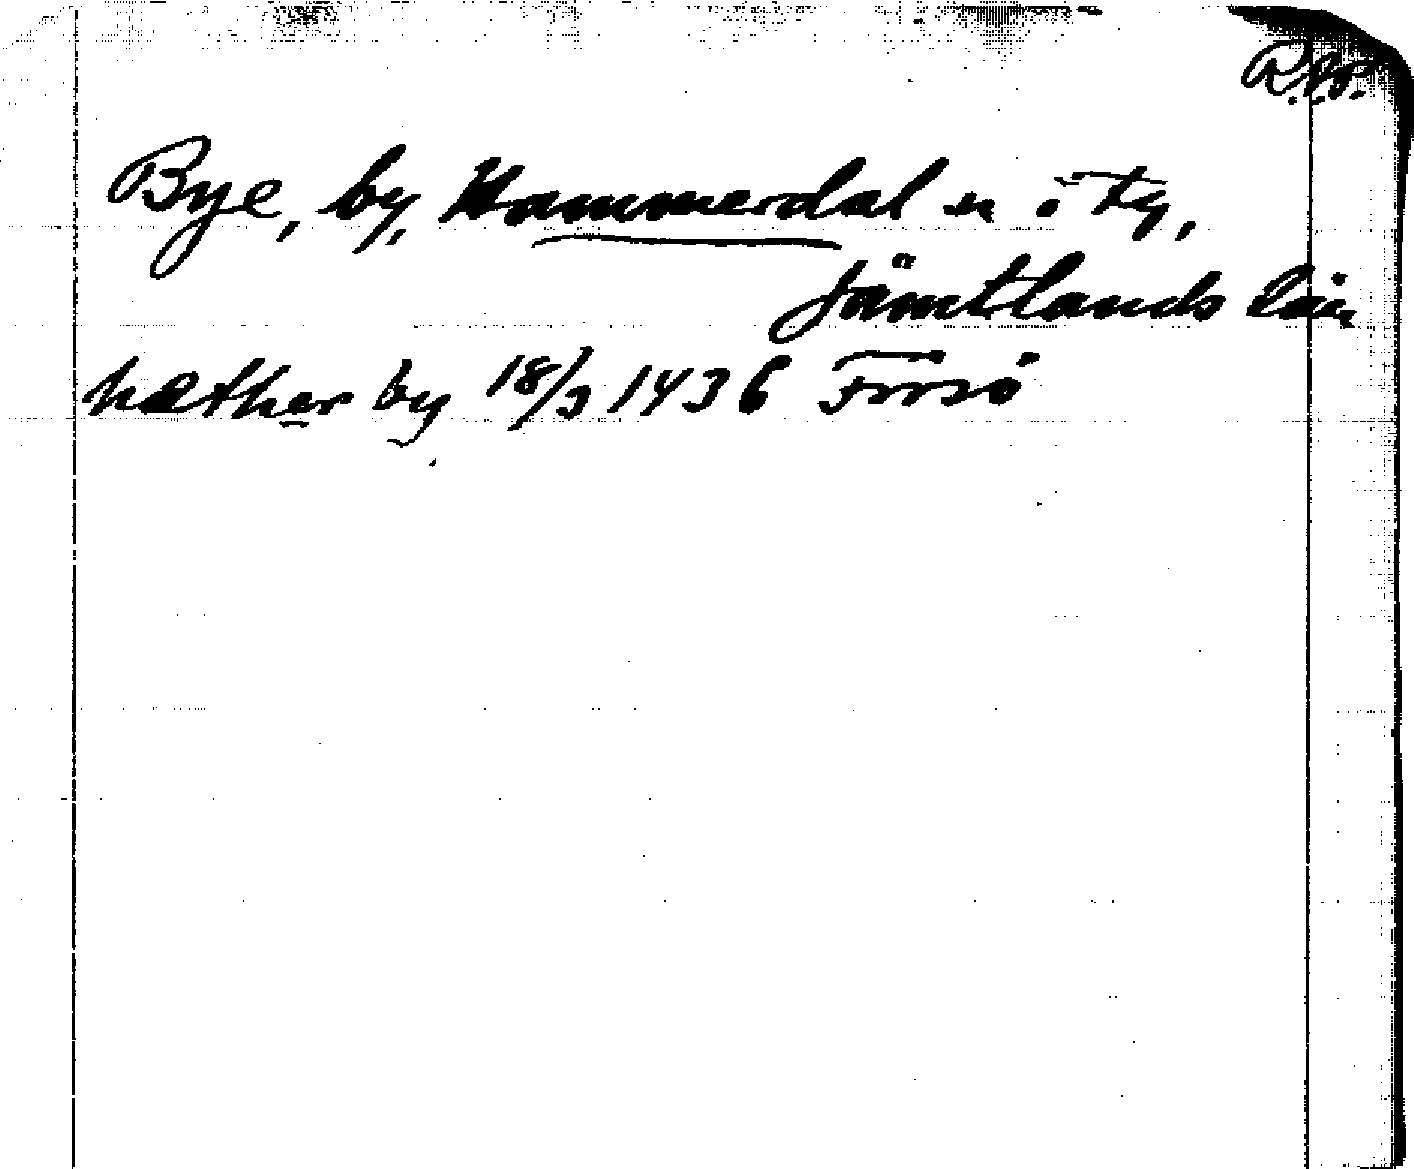 Bye, by, Hammerdal sn o tg,
Jämtlands län
hæther by 18/3 1436 Forsø